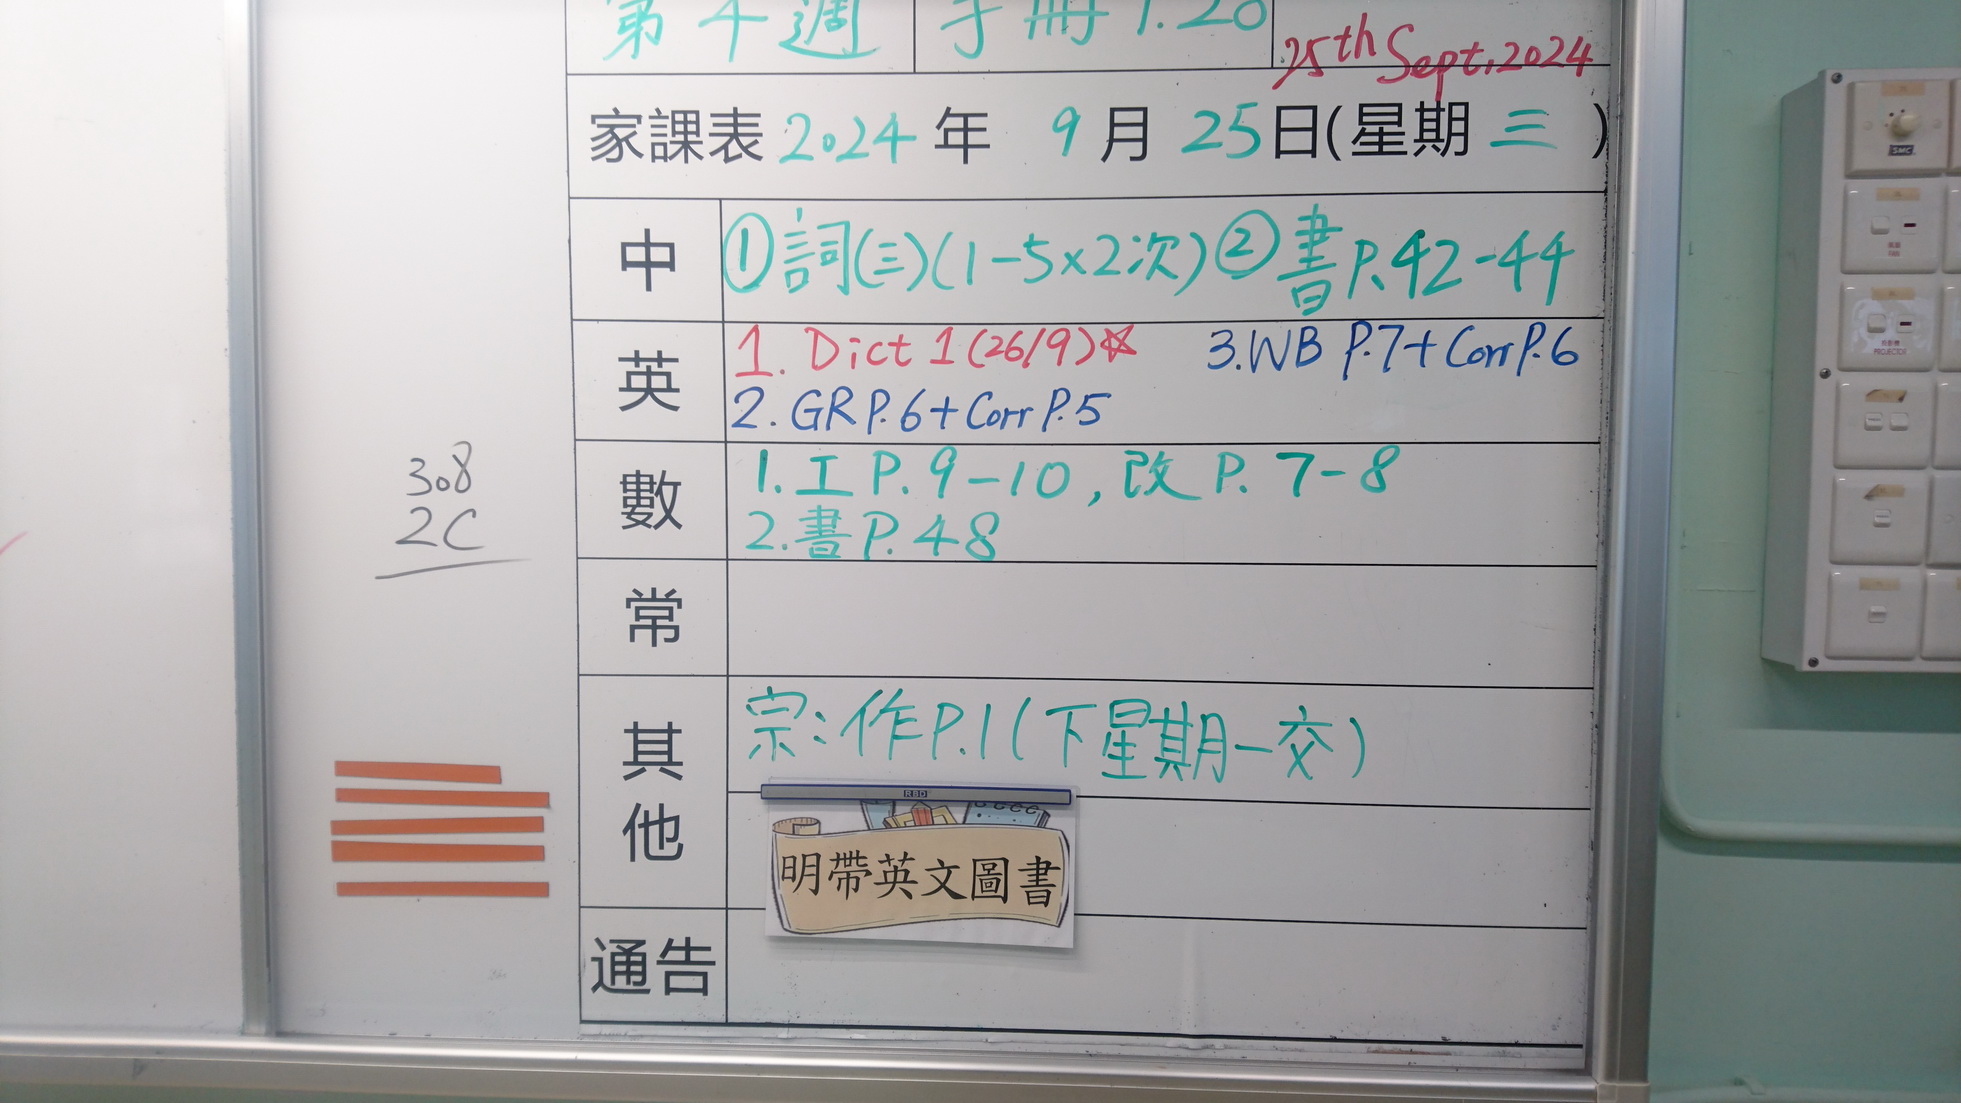 第4週 手冊 P.20
25th Sept, 2024
家課表 2024 年 9 月 25 日(星期 三 )
中 ①詞(三)(1-5×2次)②書P.42-44
英 1. Dict 1 (26/9)☆ 3.WB P.7+Corr P.6
2. GR P.6+Corr P.5
數 1. 工 P. 9-10, 改 P. 7-8
2. 書 P. 48
常
其他 宗:作P.1(下星期一交)
RBD
明帶英文圖書
通告
308
2C
SMC